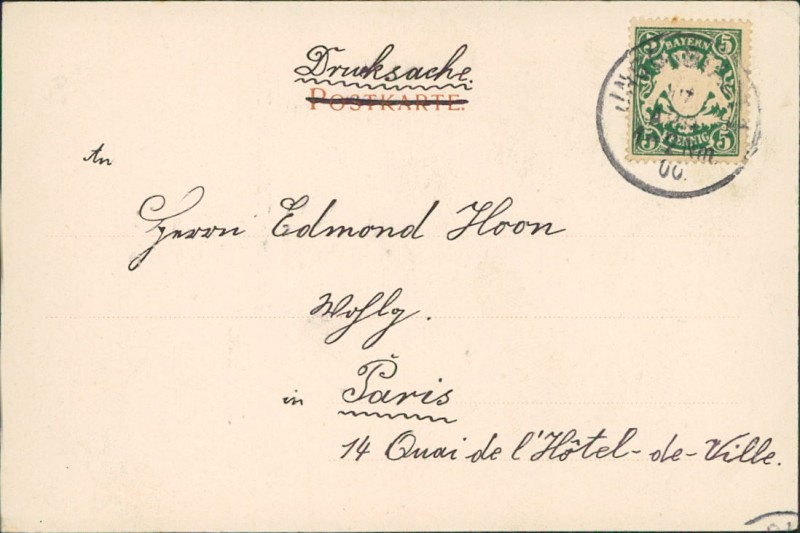 Drucksache.
POSTKARTE.
BAYERN
5 5
5 PFENNIG 5
00.
An
Herrn Edmond Hoon
Wohlg.
in Paris
14 Quai de l'Hôtel-de-Ville.